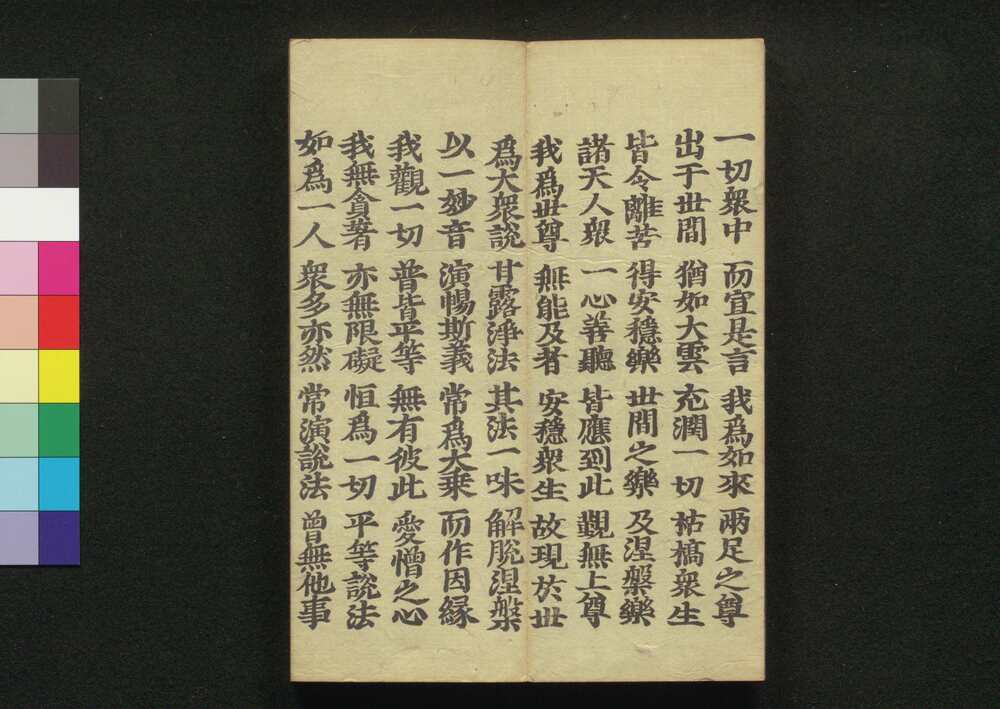 一切衆中 而宣是言 我爲如來 兩足之尊
出于世間 猶如大雲 充潤一切 枯槁衆生
皆令離苦 得安穩樂 世間之樂 及涅槃樂
諸天人衆 一心善聽 皆應到此 覲無上尊
我爲世尊 無能及者 安穩衆生 故現於世
爲大衆說 甘露淨法 其法一味 解脫涅槃
以一妙音 演暢斯義 常爲大乗 而作因縁
我觀一切 普皆平等 無有彼此 愛憎之心
我無貪著 亦無限礙 恒爲一切 平等說法
如爲一人 衆多亦然 常演說法 曾無他事